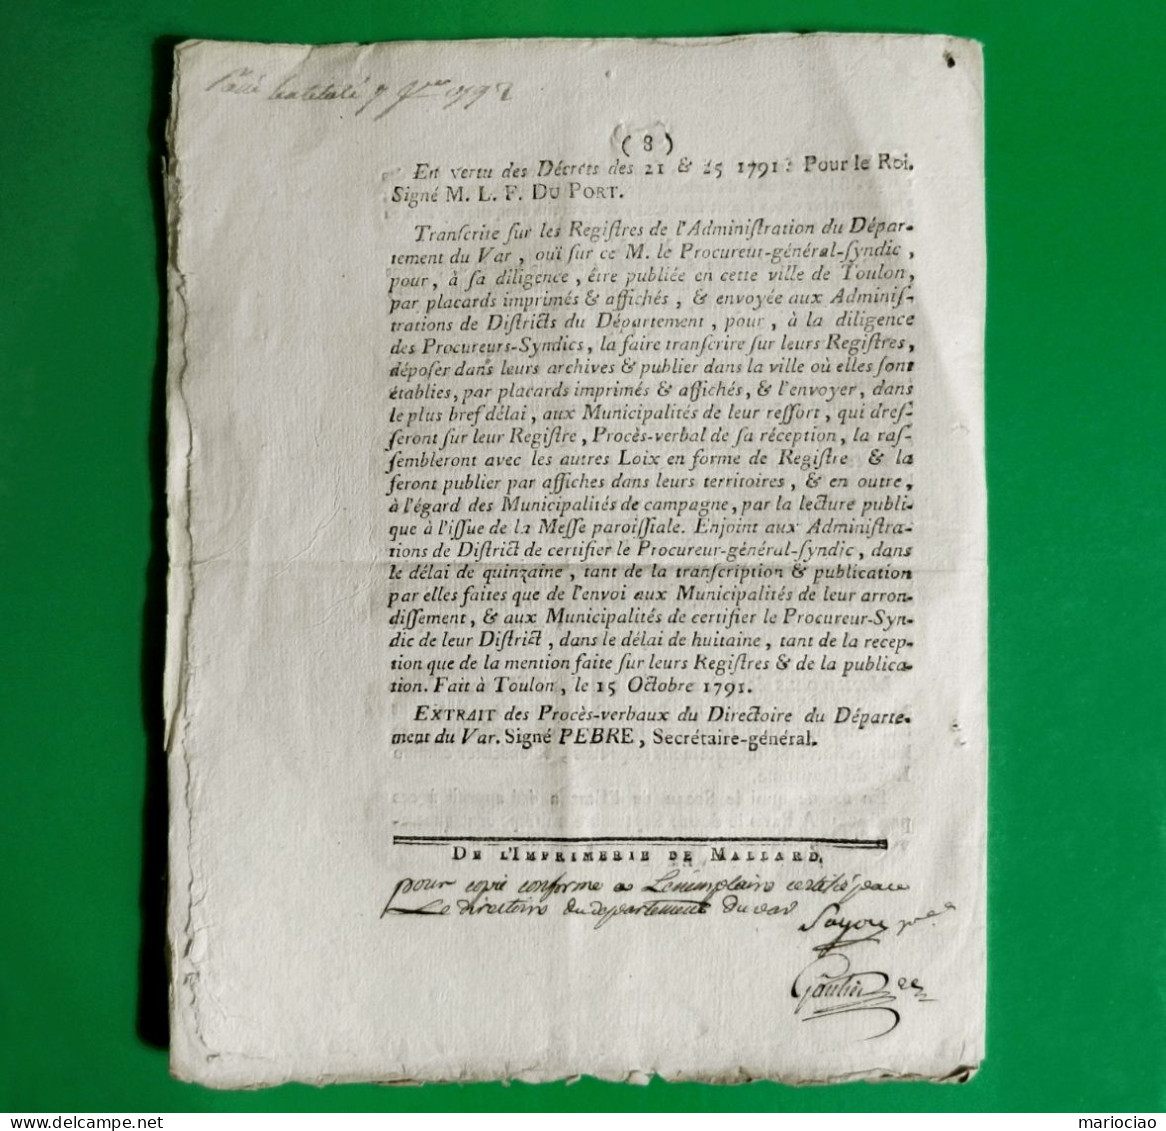 ( 8 )
En vertu des Décrets des 21 & 25 1791 : Pour le Roi.
Signé M. L. F. DU PORT.
Transcrite sur les Registres de l'Administration du Dépar-
tement du Var, ouï sur ce M. le Procureur-général-syndic,
pour, à sa diligence, être publiée en cette ville de Toulon,
par placards imprimés & affichés, & envoyée aux Adminis-
trations de Districts du Département, pour, à la diligence
des Procureurs-Syndics, la faire transcrire sur leurs Registres,
déposer dans leurs archives & publier dans la ville où elles sont
établies, par placards imprimés & affichés, & l'envoyer, dans
le plus bref délai, aux Municipalités de leur ressort, qui dres-
seront sur leur Registre, Procès-verbal de sa réception, la ras-
sembleront avec les autres Loix en forme de Registre & la
feront publier par affiches dans leurs territoires, & en outre,
à l'égard des Municipalités de campagne, par la lecture publi-
que à l'issue de la Messe paroissiale. Enjoint aux Administra-
tions de District de certifier le Procureur-général-syndic, dans
le délai de quinzaine, tant de la transcription & publication
par elles faites que de l'envoi aux Municipalités de leur arron-
dissement, & aux Municipalités de certifier le Procureur-Syn-
dic de leur District, dans le délai de huitaine, tant de la récep-
tion que de la mention faite sur leurs Registres & de la publica-
tion. Fait à Toulon, le 15 Octobre 1791.
EXTRAIT des Procès-verbaux du Directoire du Départe-
ment du Var. Signé PEBRE, Secrétaire-général.
DE L'IMPRIMERIE DE MALLARD.
pour copie conforme a Lexemplaire certifié par
Le directoire du departement du var
mariociao